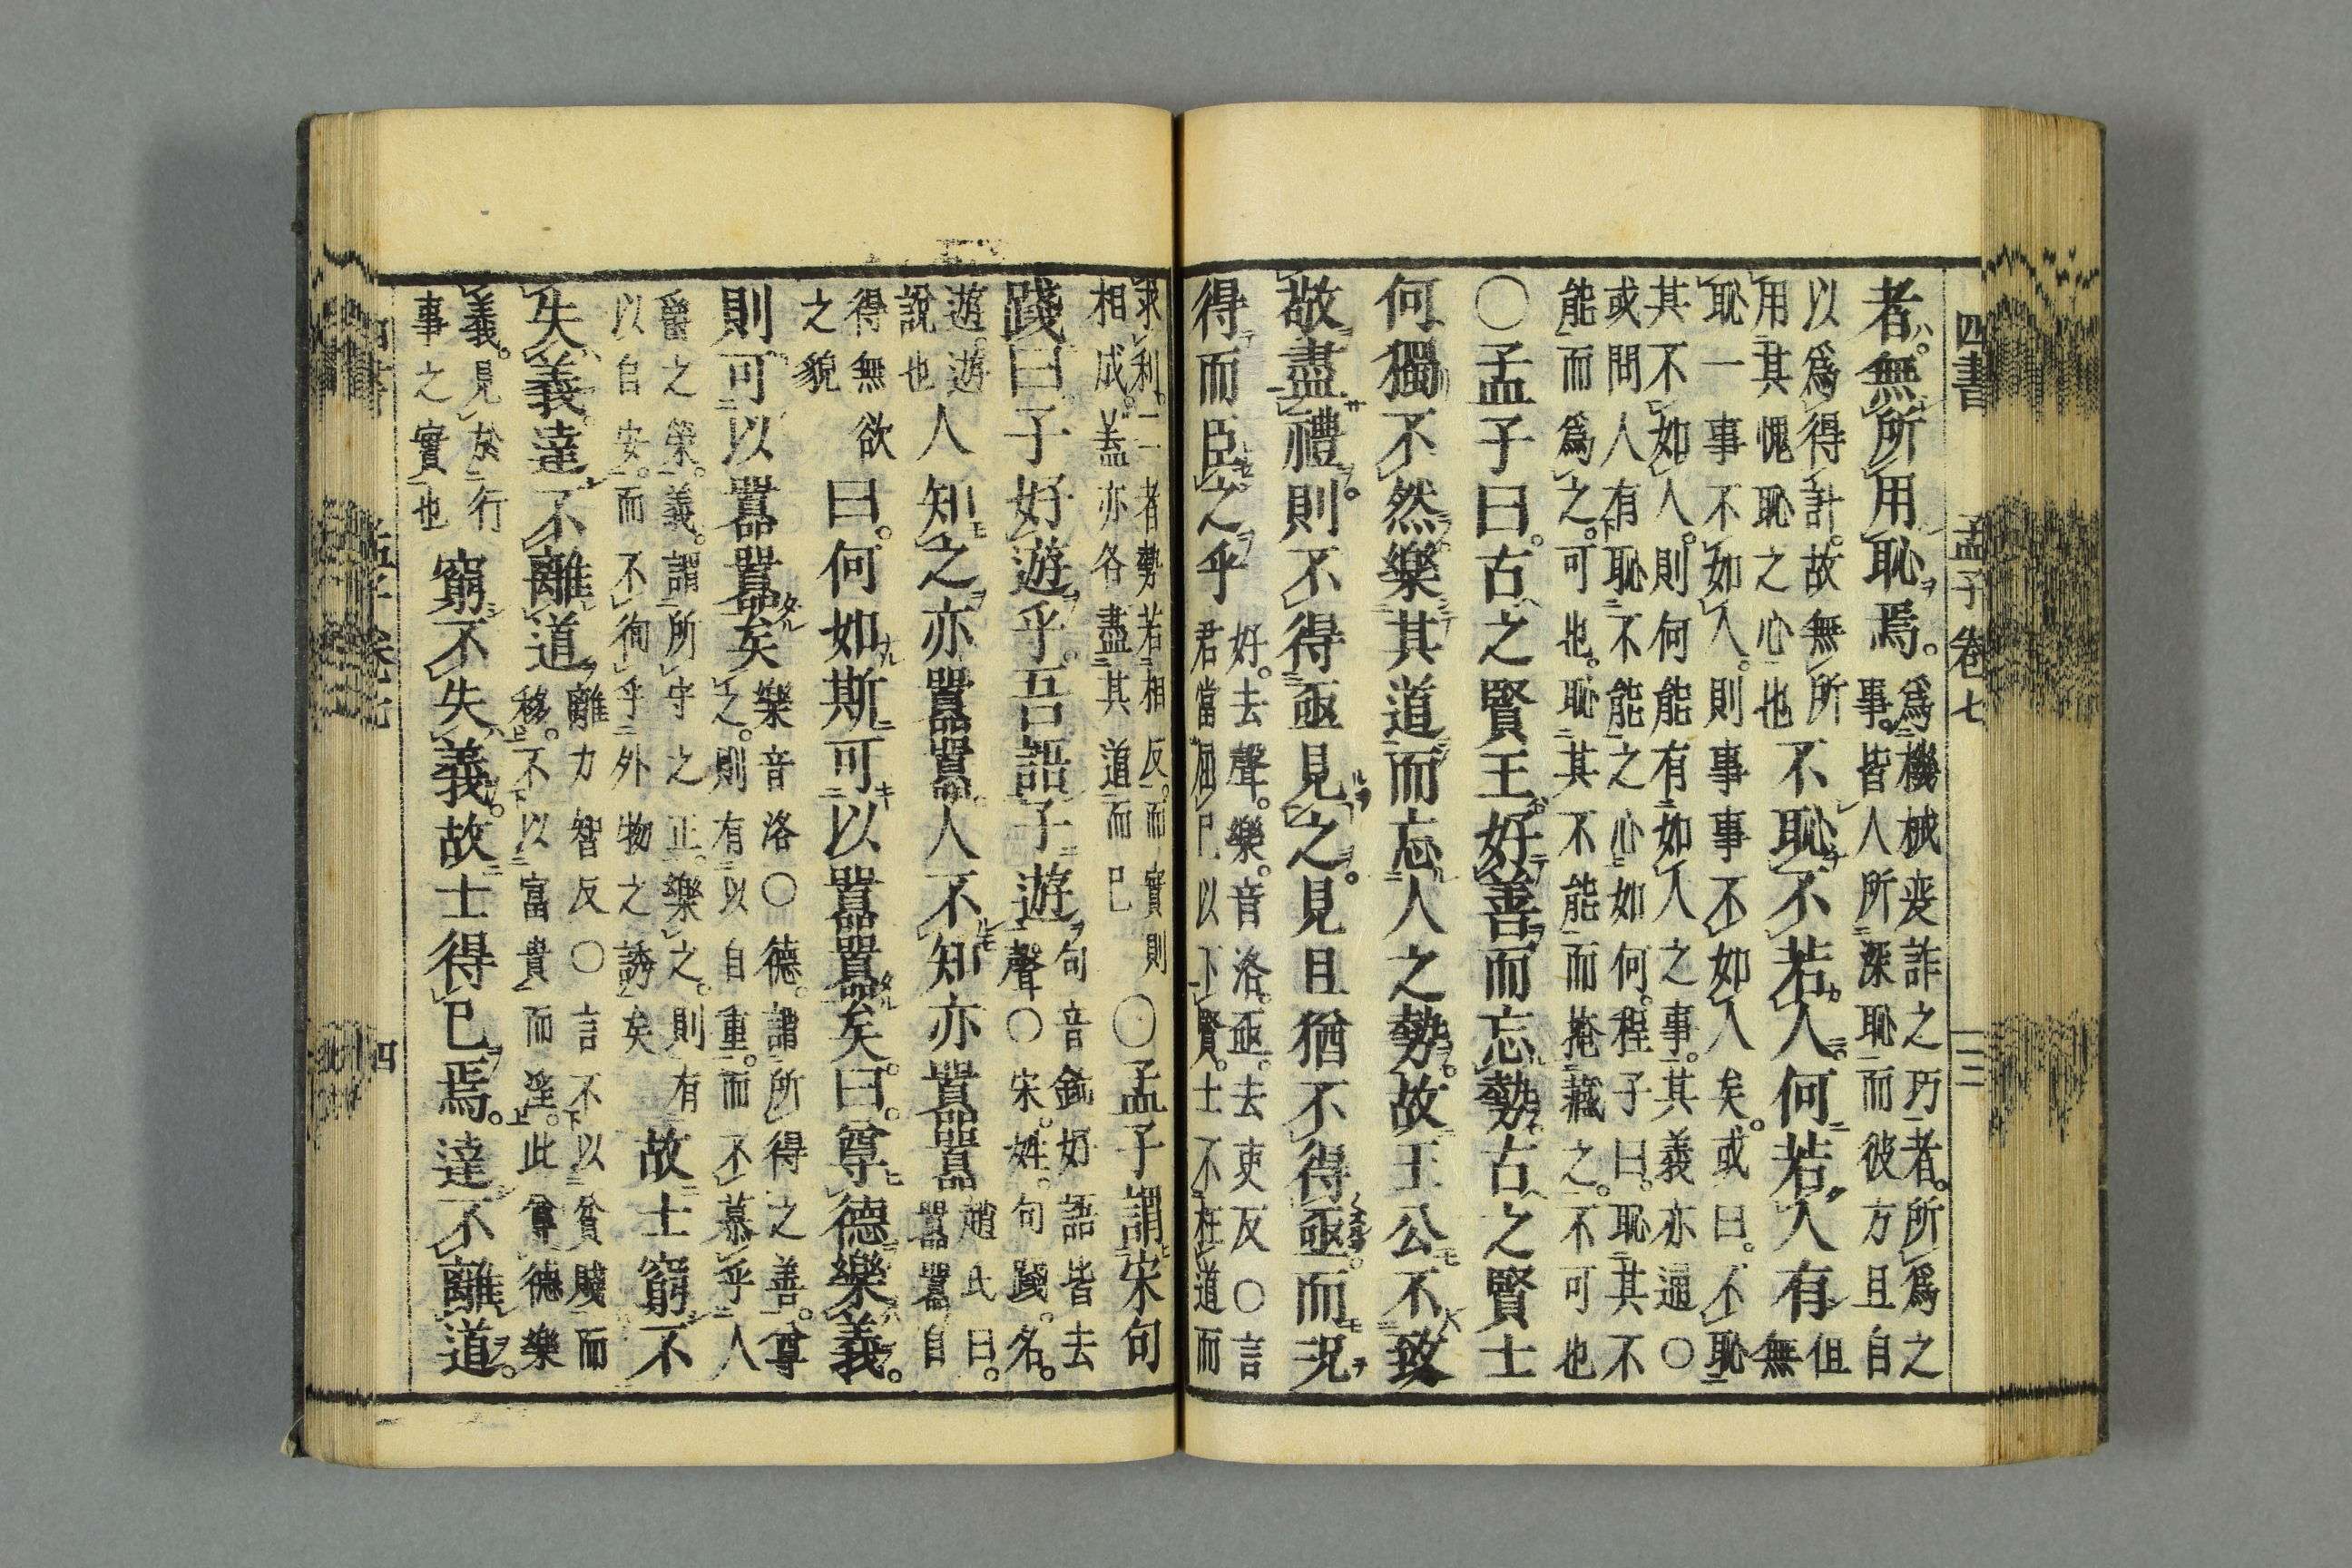 四書 孟子卷七 三
者無所用恥焉。爲機械变詐之巧者。所爲之
事。皆人所深恥。而彼方且自
以爲得計。故無所
用其愧恥之心也
不恥不若人。何若人有
但無
恥一事不如人。則事事不如人矣。或曰。不恥
其不如人。則何能有如人之事。其義亦通○
或問人有恥不能之心如何。程子曰。恥其不
能而爲之。可也。恥其不能而掩藏之。不可也
○孟子曰。古之賢王好善而忘勢古之賢士
何獨不然樂其道而忘人之勢。故王公不致
敬盡禮。則不得亟見之。見且猶不得亟。而況
得而臣之乎
好。去聲。樂。音洛。亟。去吏反○言
君當屈己以下賢。士不枉道而
求利。二者勢若相反。而實則
相成。蓋亦各盡其道而已
○孟子謂宋句
踐曰子好遊乎。吾語子遊
句音鉤好語皆去
聲○宋。姓。句踐。名。
遊。遊
說也
人知之亦囂囂。人不知亦囂囂
趙氏曰。
囂囂自
得無欲
之貌
曰。何如斯可以囂囂矣。曰。尊德樂義。
則可以囂囂矣
樂音洛○德。謂所得之善。尊
之。則有以自重。而不慕乎人
爵之榮。義。謂所守之正。樂之。則有
以自安。而不徇乎外物之誘矣
故士窮不
失義。達不離道
離力智反○言不以貧賤而
移。不以富貴而淫。此尊德樂
義。見於行
事之實也
窮不失義。故士得己焉。達不離道。
四